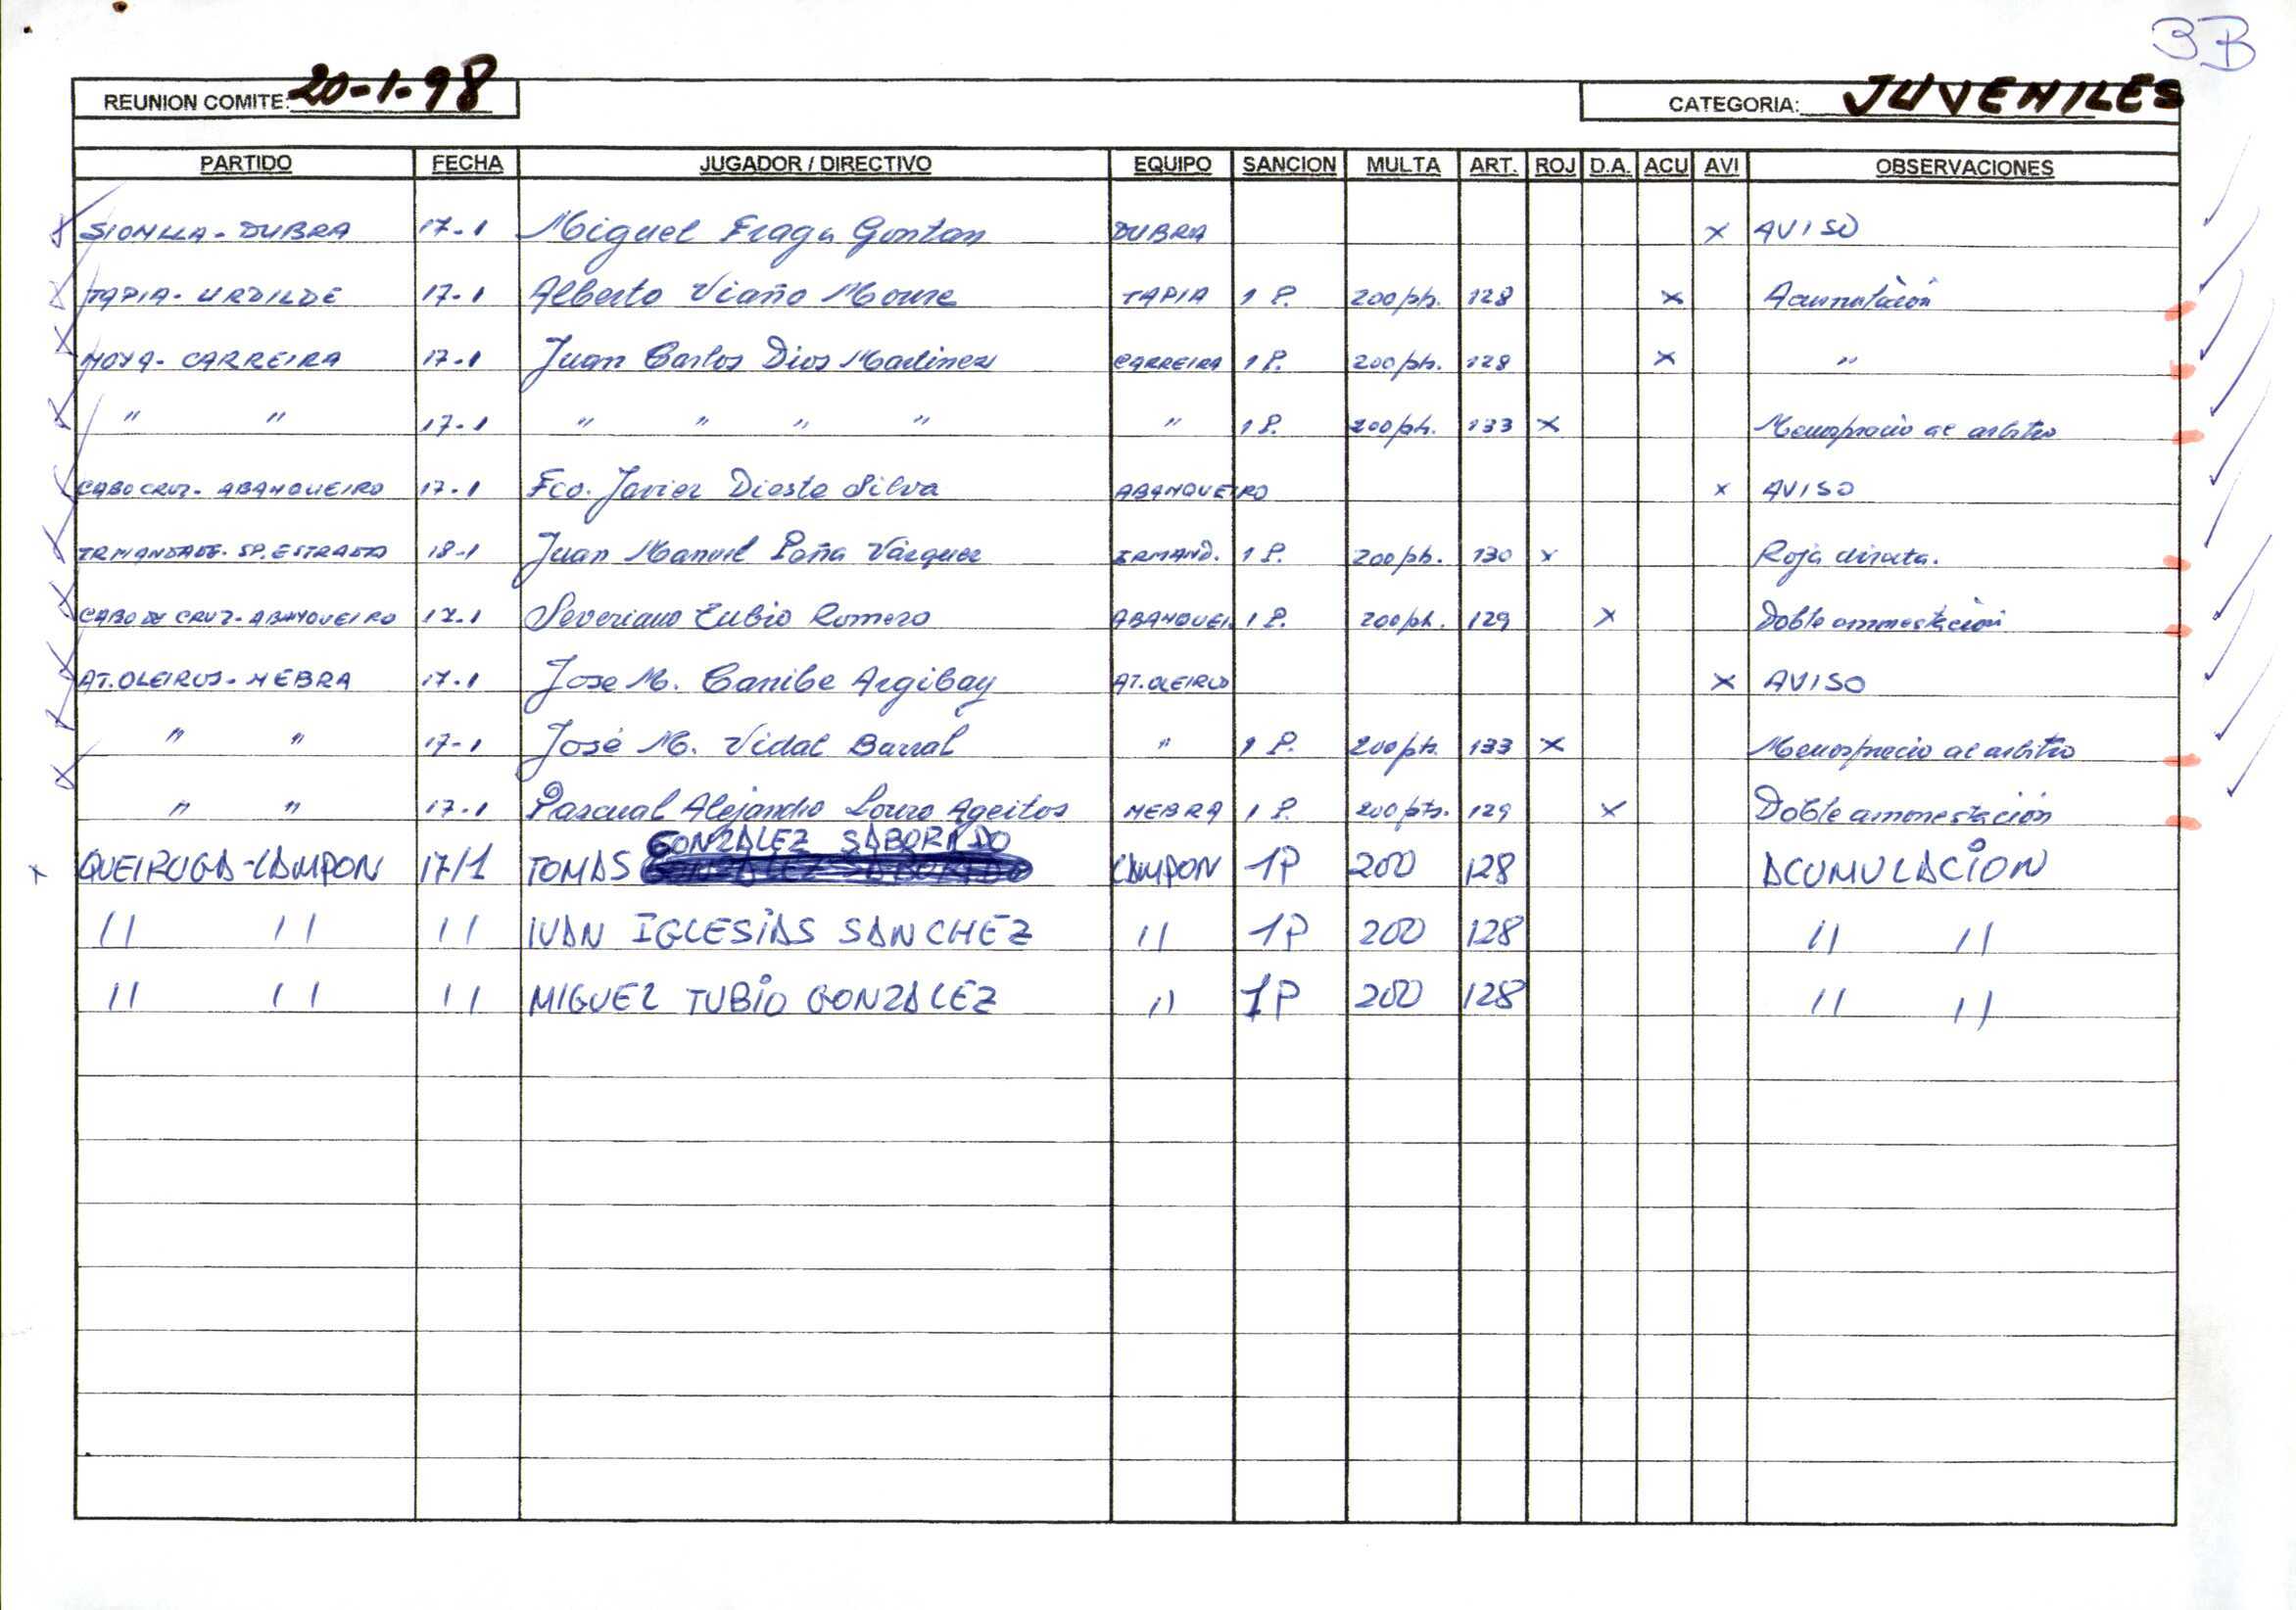 3B
REUNION COMITE: 20-1-98 CATEGORIA: JUVENILES
PARTIDO FECHA JUGADOR / DIRECTIVO EQUIPO SANCION MULTA ART. ROJ D.A. ACU AVI OBSERVACIONES
SIONLLA - DUBRA 17-1 Miguel Fraga Gontan DUBRA x AVISO
TAPIA - URDILDE 17-1 Alberto Viaño Moure TAPIA 1 P. 200 pts. 128 x Acumulación
NOYA - CARREIRA 17-1 Juan Carlos Dios Martinez CARREIRA 1 P. 200 pts. 128 x "
" " 17-1 " " " " " 1 P. 200 pts. 133 x Menosprecio al arbitro
CABO CRUZ - ABANQUEIRO 17-1 Fco. Javier Dieste Silva ABANQUEIRO x AVISO
IRMANDADE - SP. ESTRADA 18-1 Juan Manuel Peña Vázquez IRMAND. 1 P. 200 pts. 130 x Roja directa.
CABO DE CRUZ - ABANQUEIRO 17-1 Severiano Tubio Romero ABANQUEI. 1 P. 200 pt. 129 x Doble amonestación
AT. OLEIROS - NEBRA 17-1 Jose M. Caribe Argibay AT. OLEIROS x AVISO
" " 17-1 José M. Vidal Barral " 1 P. 200 pts. 133 x Menosprecio al arbitro
" " 17-1 Pascual Alejandro Louro Ageitos NEBRA 1 P. 200 pts. 129 x Doble amonestación
GONZALEZ SABORIDO
x QUEIRUGA - CAMPON 17/1 TOMAS CAMPON 1P 200 128 ACUMULACION
" " " IVAN IGLESIAS SANCHEZ " 1P 200 128 " "
" " " MIGUEL TUBIO GONZALEZ " 1P 200 128 " "